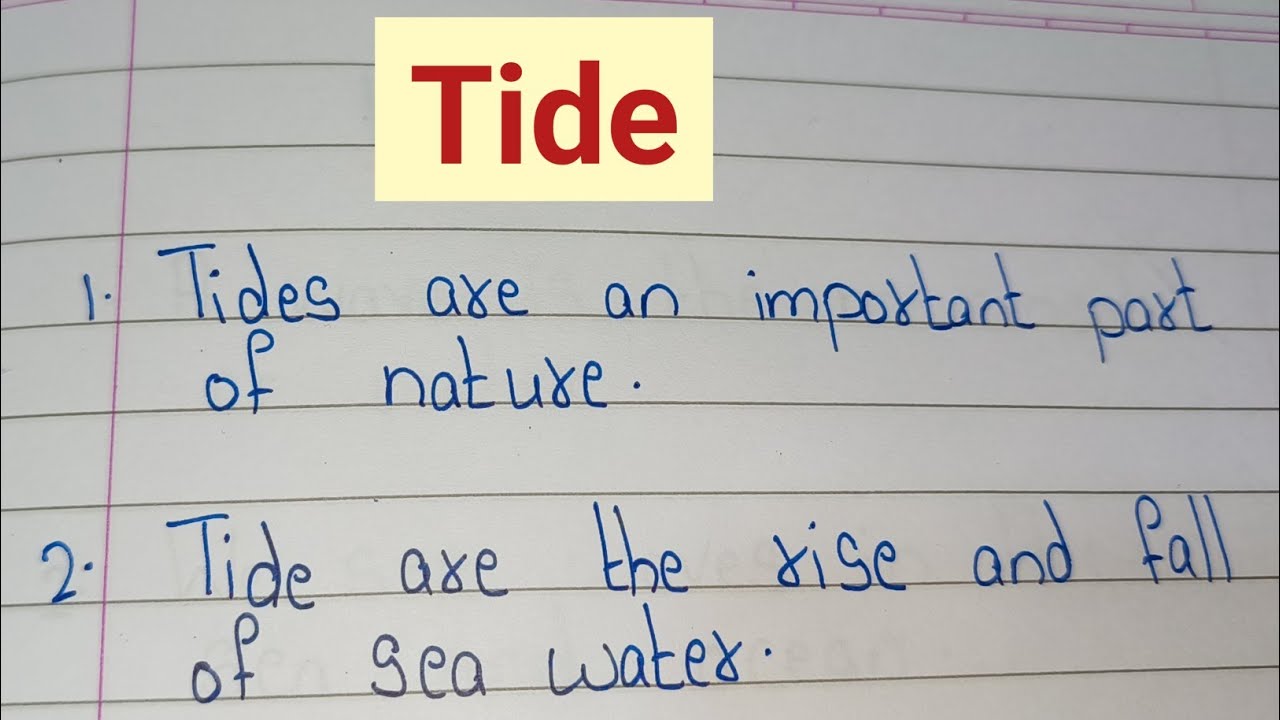 Tide
1. Tides are an important part
of nature.
2. Tide are the rise and fall
of sea water.